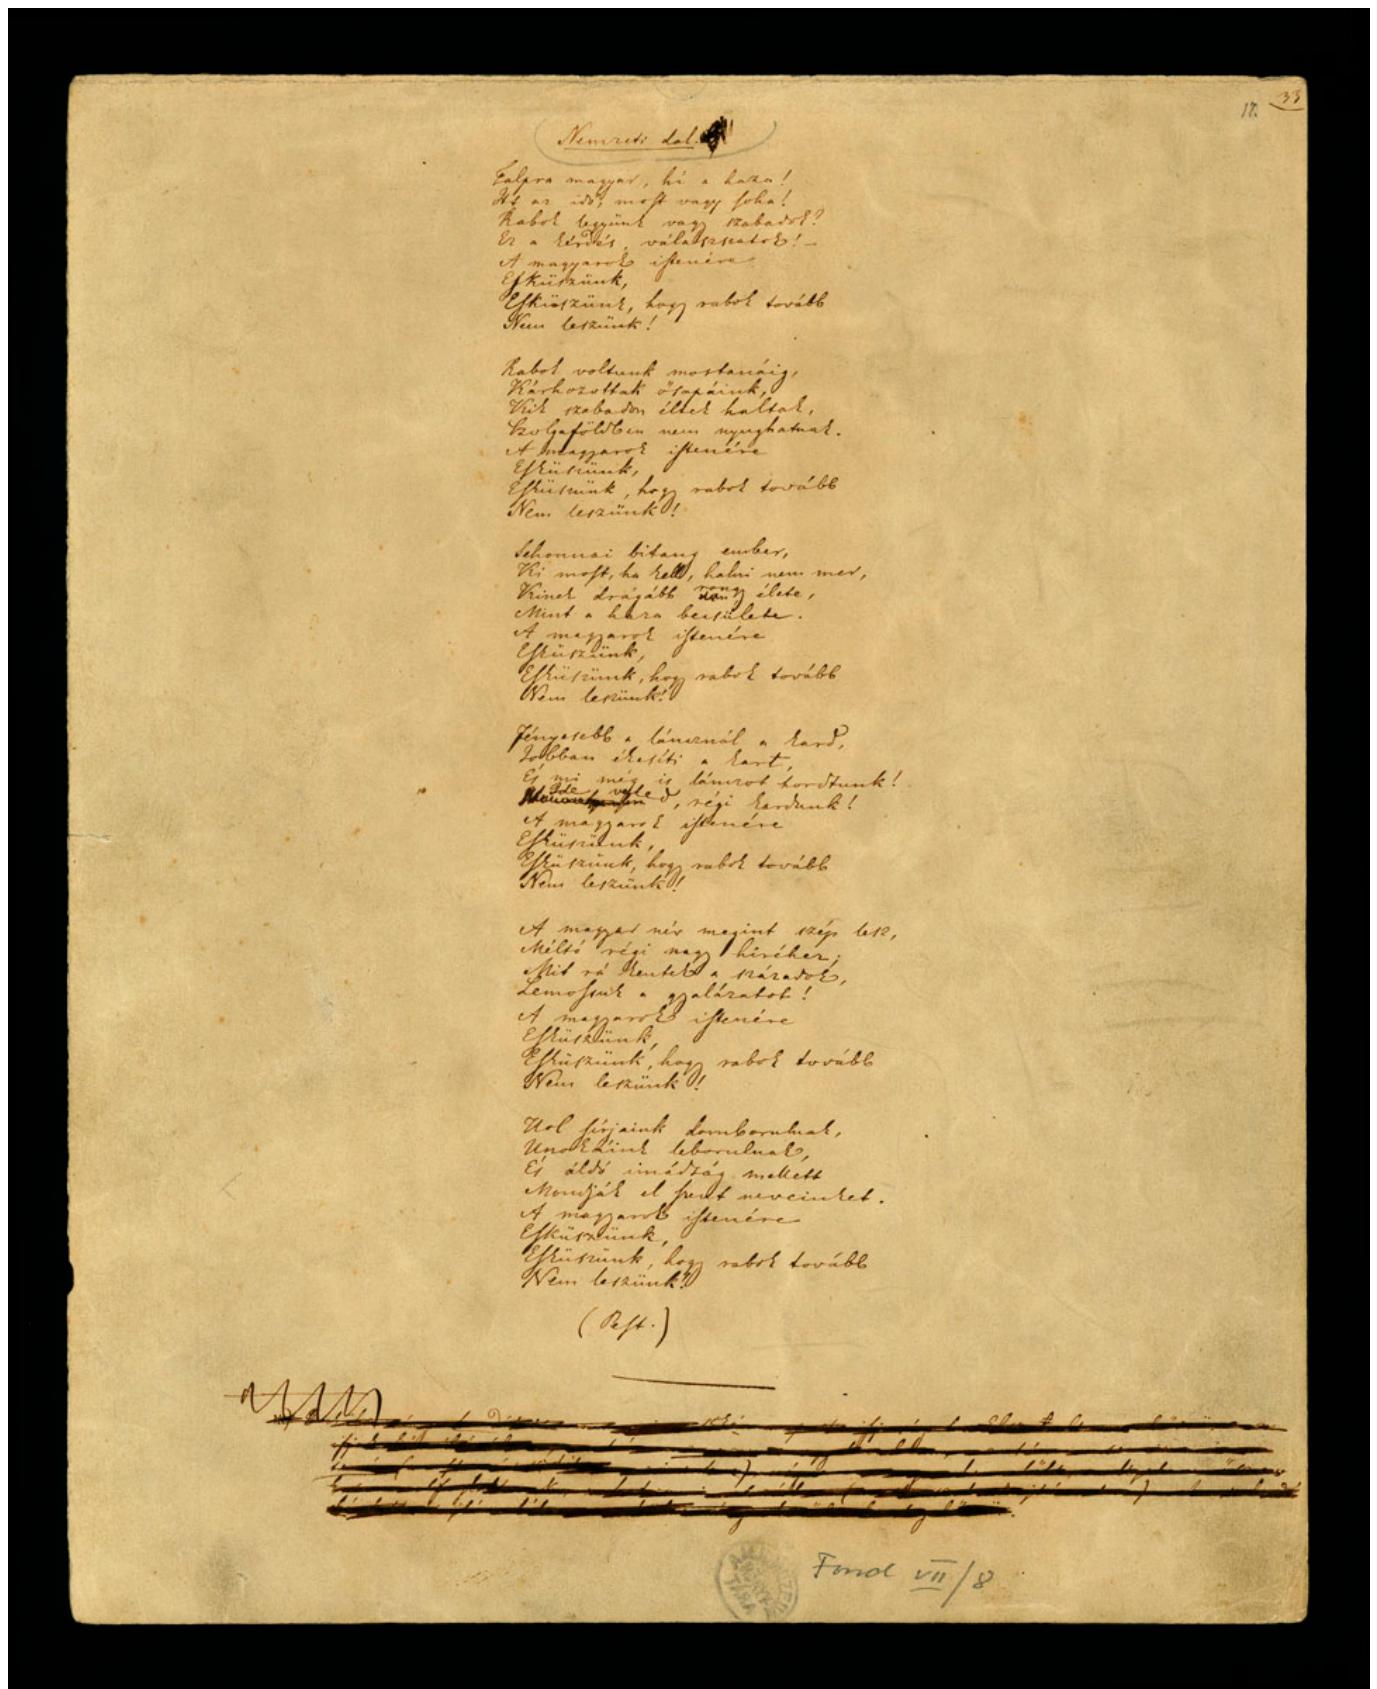 33
17.
Nemzeti dal.
Talpra magyar, hí a haza!
Itt az idő, most vagy soha!
Rabok legyünk vagy szabadok?
Ez a kérdés, válaszszatok! –
A magyarok istenére
Esküszünk,
Esküszünk, hogy rabok tovább
Nem leszünk!
Rabok voltunk mostanáig,
Kárhozottak ősapáink,
Kik szabadon éltek haltak,
Szolgaföldben nem nyughatnak.
A magyarok istenére
Esküszünk,
Esküszünk, hogy rabok tovább
Nem leszünk!
Sehonnai bitang ember,
Ki most, ha kell, halni nem mer,
Kinek drágább rongy élete,
Mint a haza becsülete.
A magyarok istenére
Esküszünk,
Esküszünk, hogy rabok tovább
Nem leszünk!
Fényesebb a láncznál a kard,
Jobban ékesíti a kart,
És mi még is lánczot hordtunk!
Ide veled, régi kardunk!
A magyarok istenére
Esküszünk,
Esküszünk, hogy rabok tovább
Nem leszünk!
A magyar név megint szép lesz,
Méltó régi nagy hiréhez;
Mit rá kentek a századok,
Lemossuk a gyalázatot!
A magyarok istenére
Esküszünk,
Esküszünk, hogy rabok tovább
Nem leszünk!
Hol sírjaink domborulnak,
Unokáink leborulnak,
És áldó imádság mellett
Mondják el szent neveinket.
A magyarok istenére
Esküszünk,
Esküszünk, hogy rabok tovább
Nem leszünk!
(Pest.)
Fond VII/8